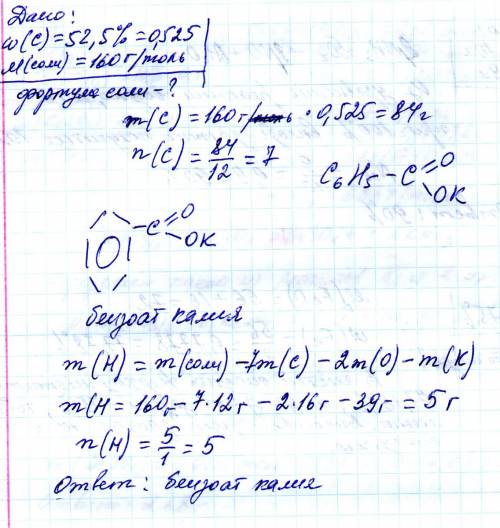 Дано:
ω(C) = 52,5% = 0,525
M(соли) = 160 г/моль
формула соли - ?
m(C) = 160 г/моль · 0,525 = 84 г
n(C) = 84/12 = 7
C₆H₅ - C = O
OK
- C = O
OK
бензоат калия
m(H) = m(соли) - 7m(C) - 2m(O) - m(K)
m(H = 160г - 7·12г - 2·16г - 39г = 5г
n(H) = 5/1 = 5
Ответ: бензоат калия